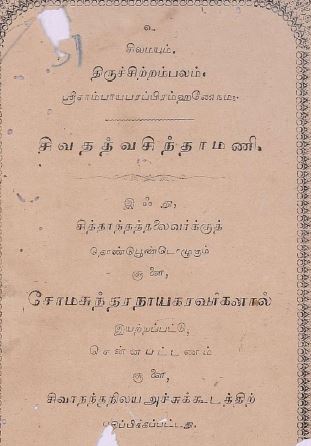 உ
சிவமயம்.
திருச்சிற்றம்பலம்.
ஸ்ரீசாம்பாயபரப்பிரம்ஹணேநம:
சிவதத்வசிந்தாமணி.
இஃது,
சித்தாந்தத்தலைவர்க்குத்
தொண்டுபூண்டொழுகும்
சூளை,
சோமசுந்தரநாயகரவர்களால்
இயற்றப்பட்டு,
சென்னபட்டணம்
சூளை,
சிவாநந்தநிலயஅச்சுக்கூடத்திற்
பதிப்பிக்கப்பட்டது.